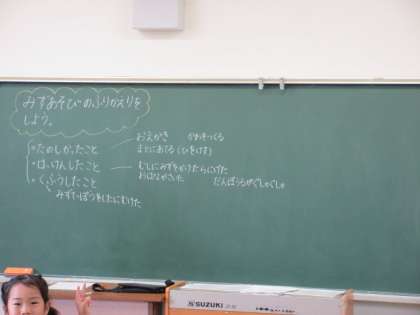 みずあそびのふりかえりを
しよう。
・たのしかったこと
おえかき かわをつくる
まとにあてる(ひをけす)
・はっけんしたこと
むしにみずをかけたらにげた
おはながさいた だんぼうるがぐしゃぐしゃ
・くふうしたこと
みずでっぽうをしたにむけた
SUZUKI